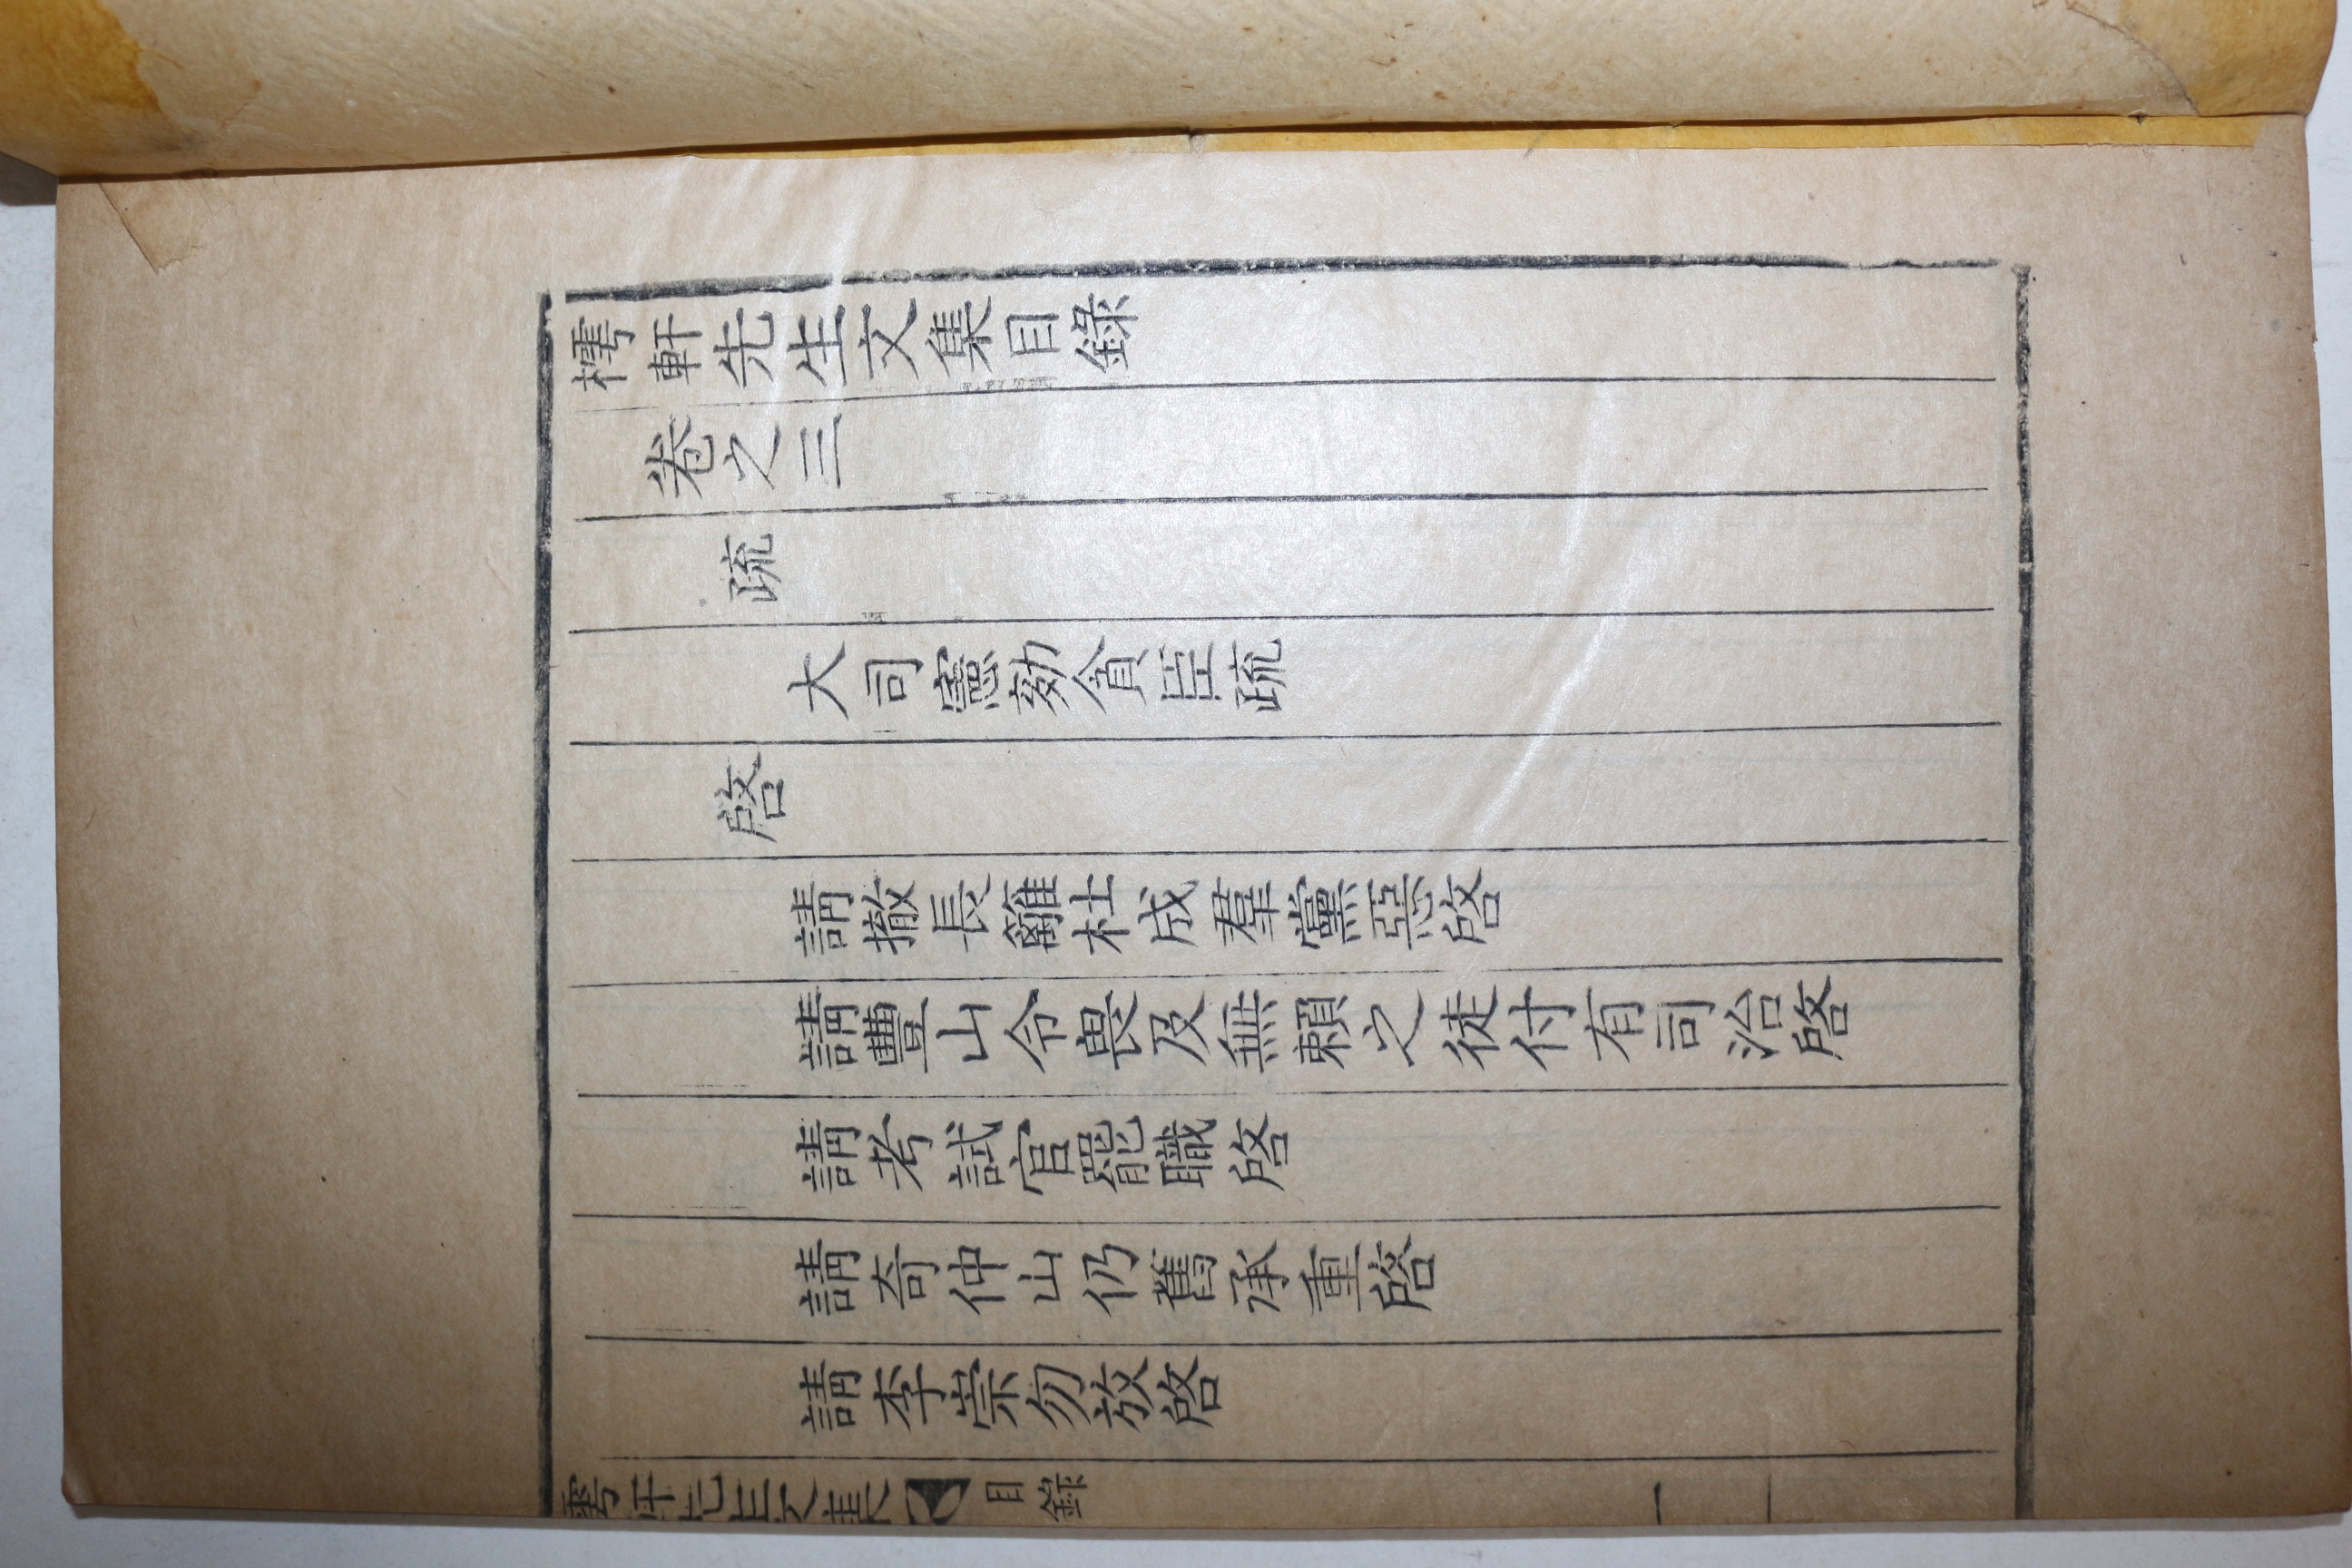 樗軒先生文集目錄
卷之三
疏
大司憲劾貪臣疏
啓
請撤長籬杜成羣黨惡啓
請豐山令畏及無賴之徒付有司治啓
請考試官罷職啓
請奇仲山仍舊承重啓
請李崇勿放啓
目錄
一